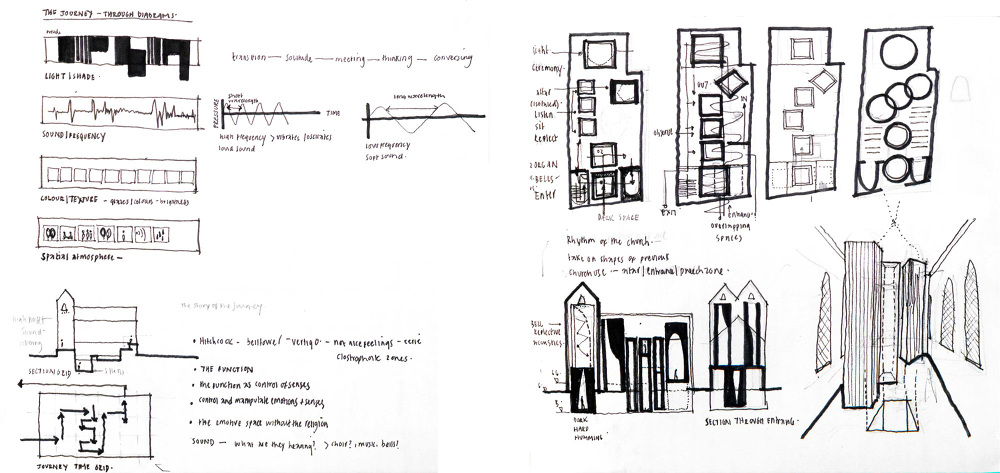 THE JOURNEY - THROUGH DIAGRAMS.
LIGHT | SHADE.
SOUND/FREQUENCY
COLOUR/TEXTURE - - brightness
Spatial atmosphere -
transition - solitude - meeting - thinking - conversing
PRESSURE
short wavelength
TIME
high frequency > vibrates/oscillates
loud sound
long wavelength
low frequency
soft sound.
the story of the journey
SECTION GRID
JOURNEY TIME GRID.
• Hitchcock - belltower/"vertigo" - not nice feelings - eerie
Clostrophobic zones.
• THE FUNCTION
• the function as control of senses
• control and manipulate emotions + senses
• the emotive space without the religion
SOUND - what are they hearing? > choir?, music, bells?
light
Ceremony
altar
Listen
sit
reflect
ORGAN
BELLS
Enter
SPACE
OUT
IN
EXIT
overlapping
SPACES
Rhythm of the church.
take on shapes of previous
church use - altar/entrance/preach zone.
BELL
REFLECTIVE
ACOUSTICS
DARK
HARD
HUMMING.
SECTION THROUGH ENTRANCE.